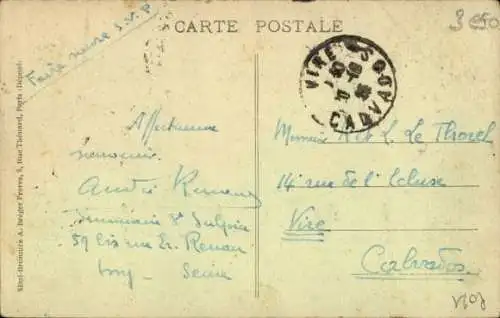 CARTE POSTALE
3 €50
Faire suivre S.V.P.
VIRE
CALVADOS
Affectueux
souvenir
André
Séminaire St Sulpice
59 bis rue Er. Renan
Issy - Seine
Monsieur R. Le Thorel
14 rue de l'Ecluse
Vire
Calvados.
Sépti-Bromure A. Breger Frères, 9, Rue Thénard, Paris (Déposé)